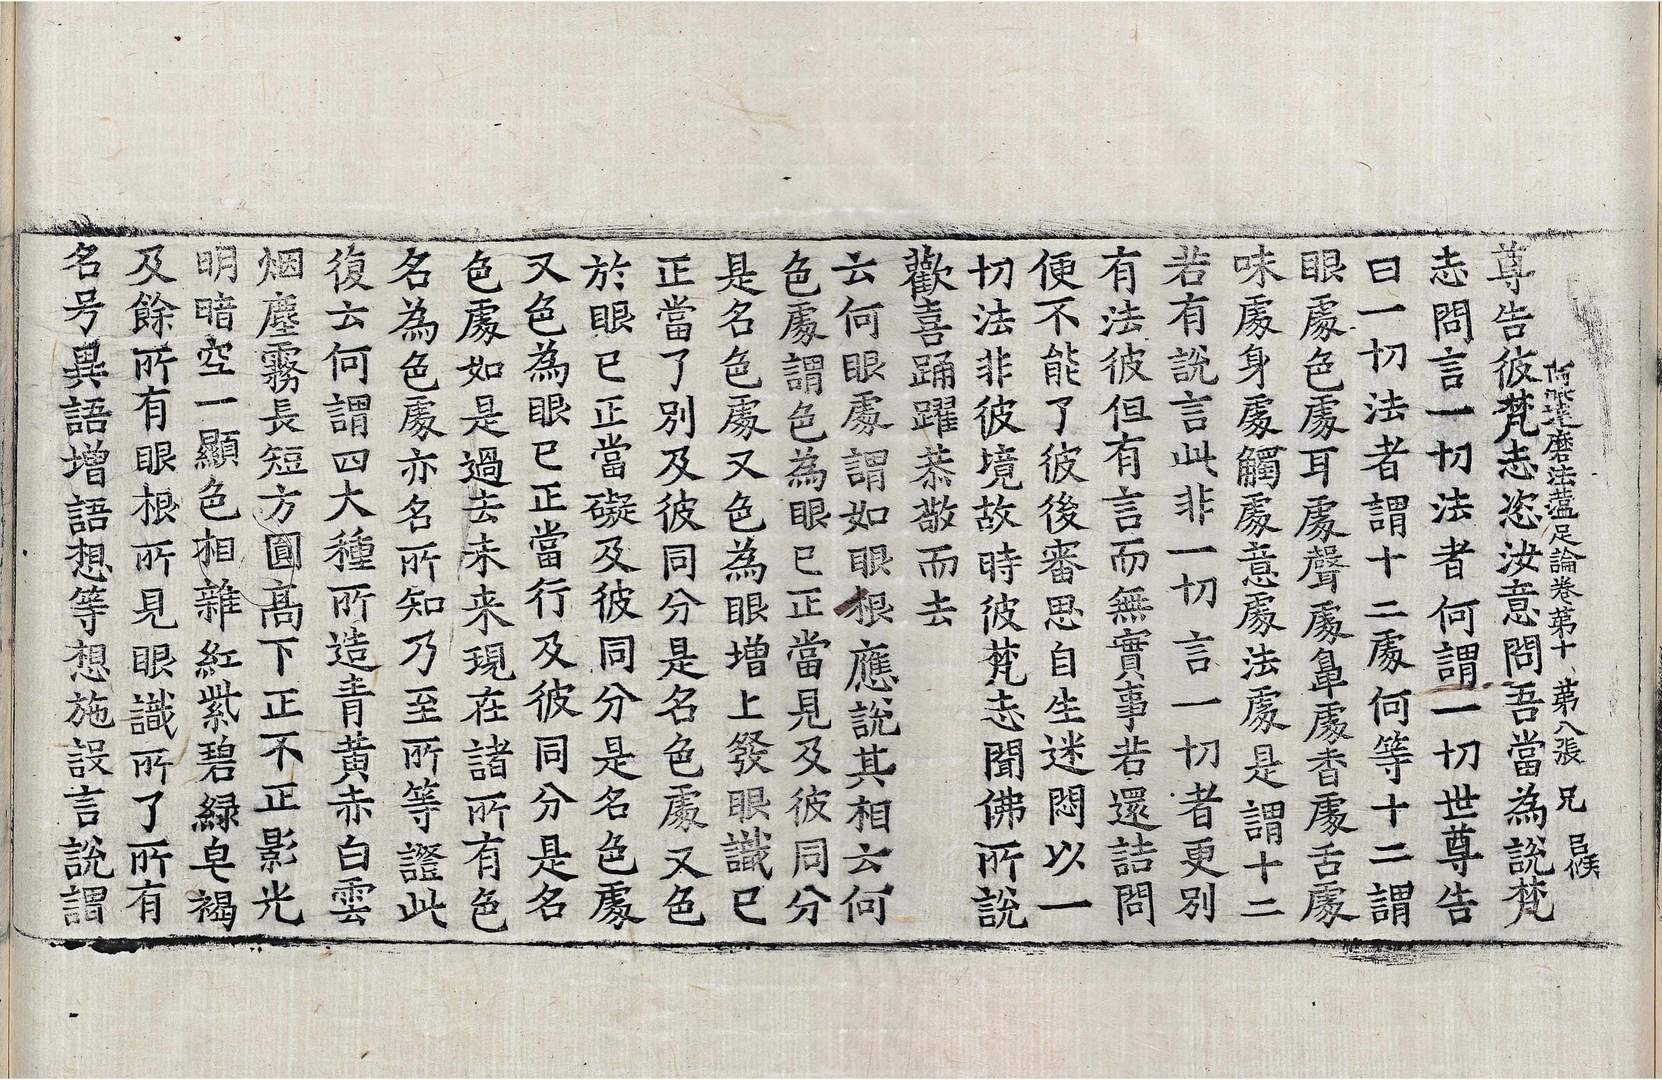 阿毗達磨法蘊足論卷第十 第八張 兄
尊告彼梵志恣汝意問吾當為說梵
志問言一切法者何謂一切世尊告
曰一切法者謂十二處何等十二謂
眼處色處耳處聲處鼻處香處舌處
味處身處觸處意處法處是謂十二
若有說言此非一切言一切者更別
有法彼但有言而無實事若還詰問
便不能了彼後審思自生迷悶以一
切法非彼境故時彼梵志聞佛所說
歡喜踊躍恭敬而去
云何眼處謂如眼根應說其相云何
色處謂色為眼已正當見及彼同分
是名色處又色為眼增上發眼識已
正當了別及彼同分是名色處又色
於眼已正當礙及彼同分是名色處
又色為眼已正當行及彼同分是名
色處如是過去未来現在諸所有色
名為色處亦名所知乃至所等證此
復云何謂四大種所造青黃赤白雲
烟塵霧長短方圓高下正不正影光
明暗空一顯色相雜紅紫碧綠皂褐
及餘所有眼根所見眼識所了所有
名号異語增語想等想施設言說謂